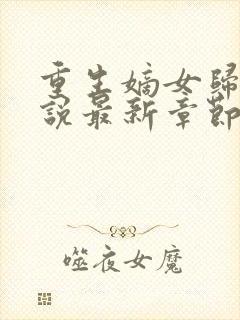 重生嫡女歸
說最新章節
噬夜女魔